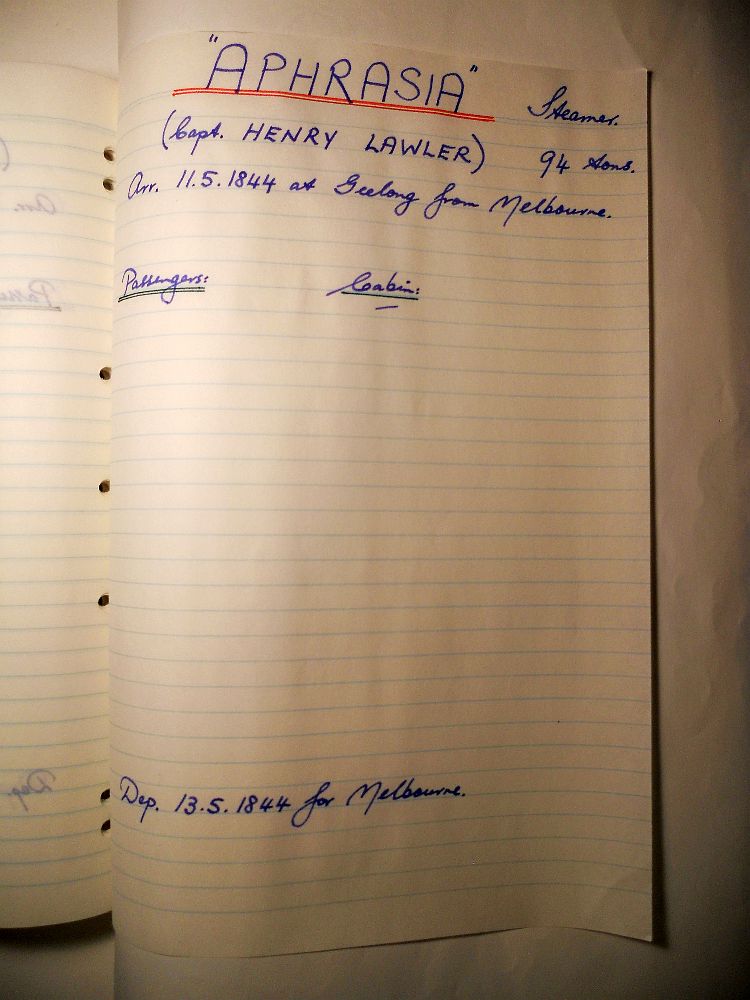 "APHRASIA" Steamer.
(Capt. HENRY LAWLER) 94 tons.
Arr. 11.5.1844 at Geelong from Melbourne.
Passengers: Cabin:
—
Dep. 13.5.1844 for Melbourne.